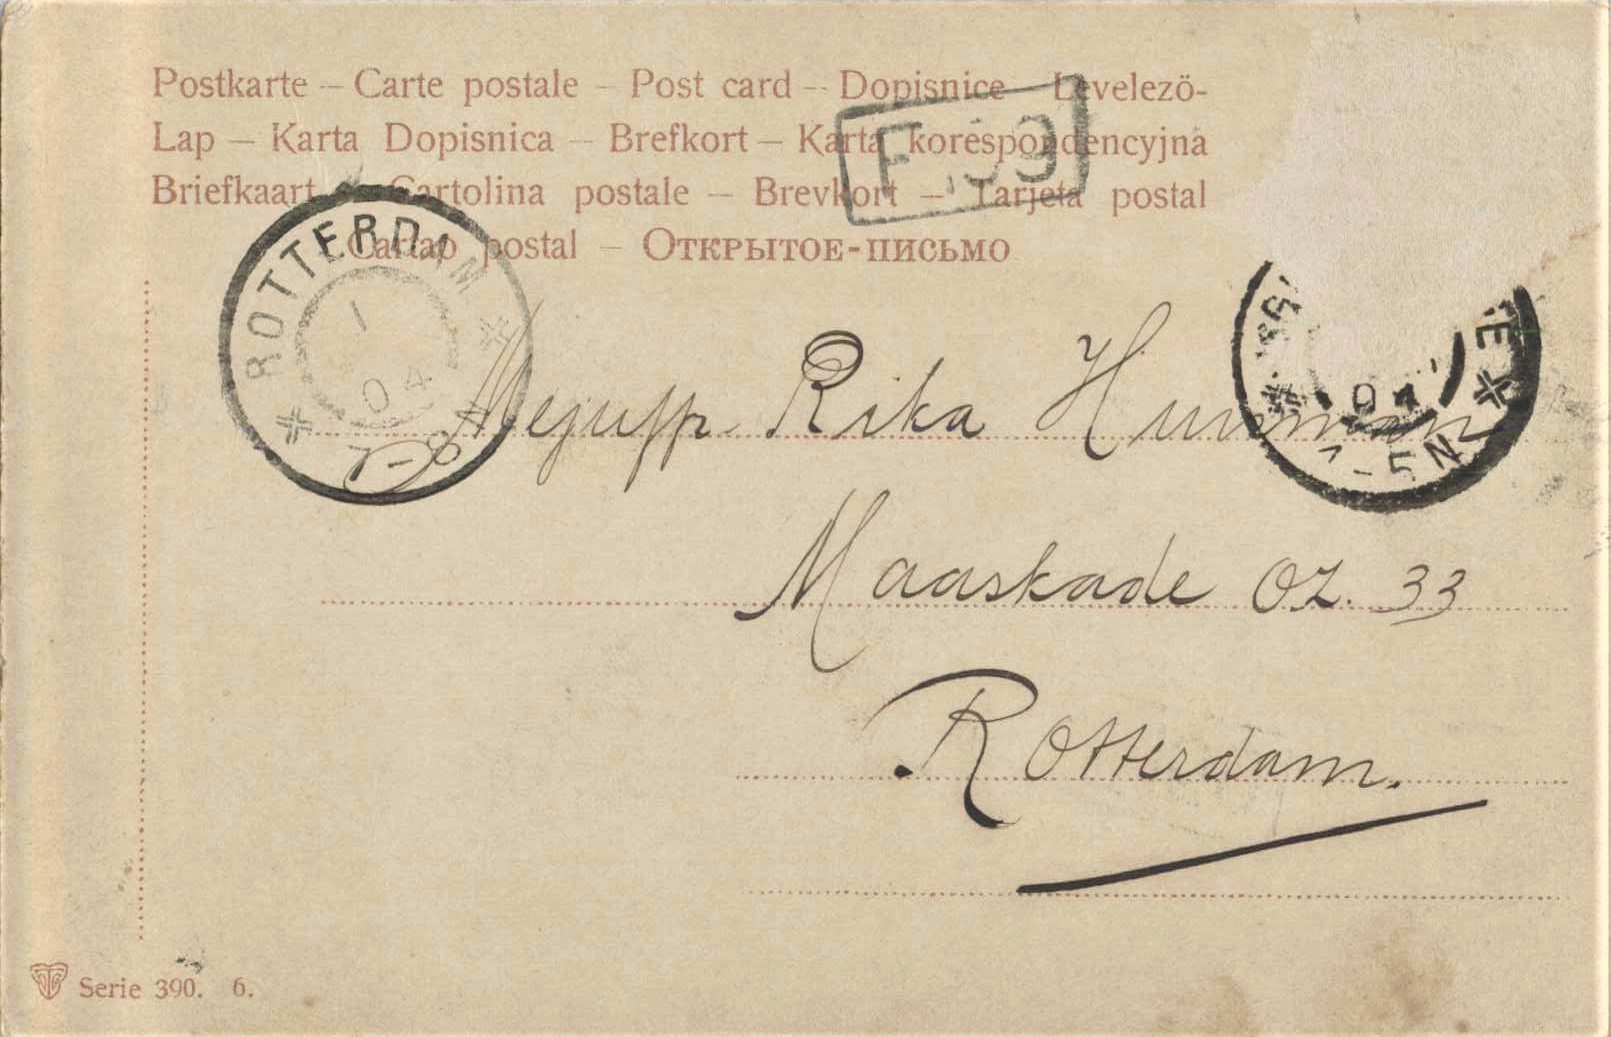 Postkarte – Carte postale – Post card – Dopisnice – Levelezö-
Lap – Karta Dopisnica – Brefkort – Karta korespondencyjna
Briefkaart – Cartolina postale – Brevkort – Tarjeta postal
Cartao postal – Открытое-письмо
F .39
ROTTERDAM
1
04
7-8
04
-5N
Mejuffr. Rika
Maaskade OZ. 33
Rotterdam.
Serie 390. 6.